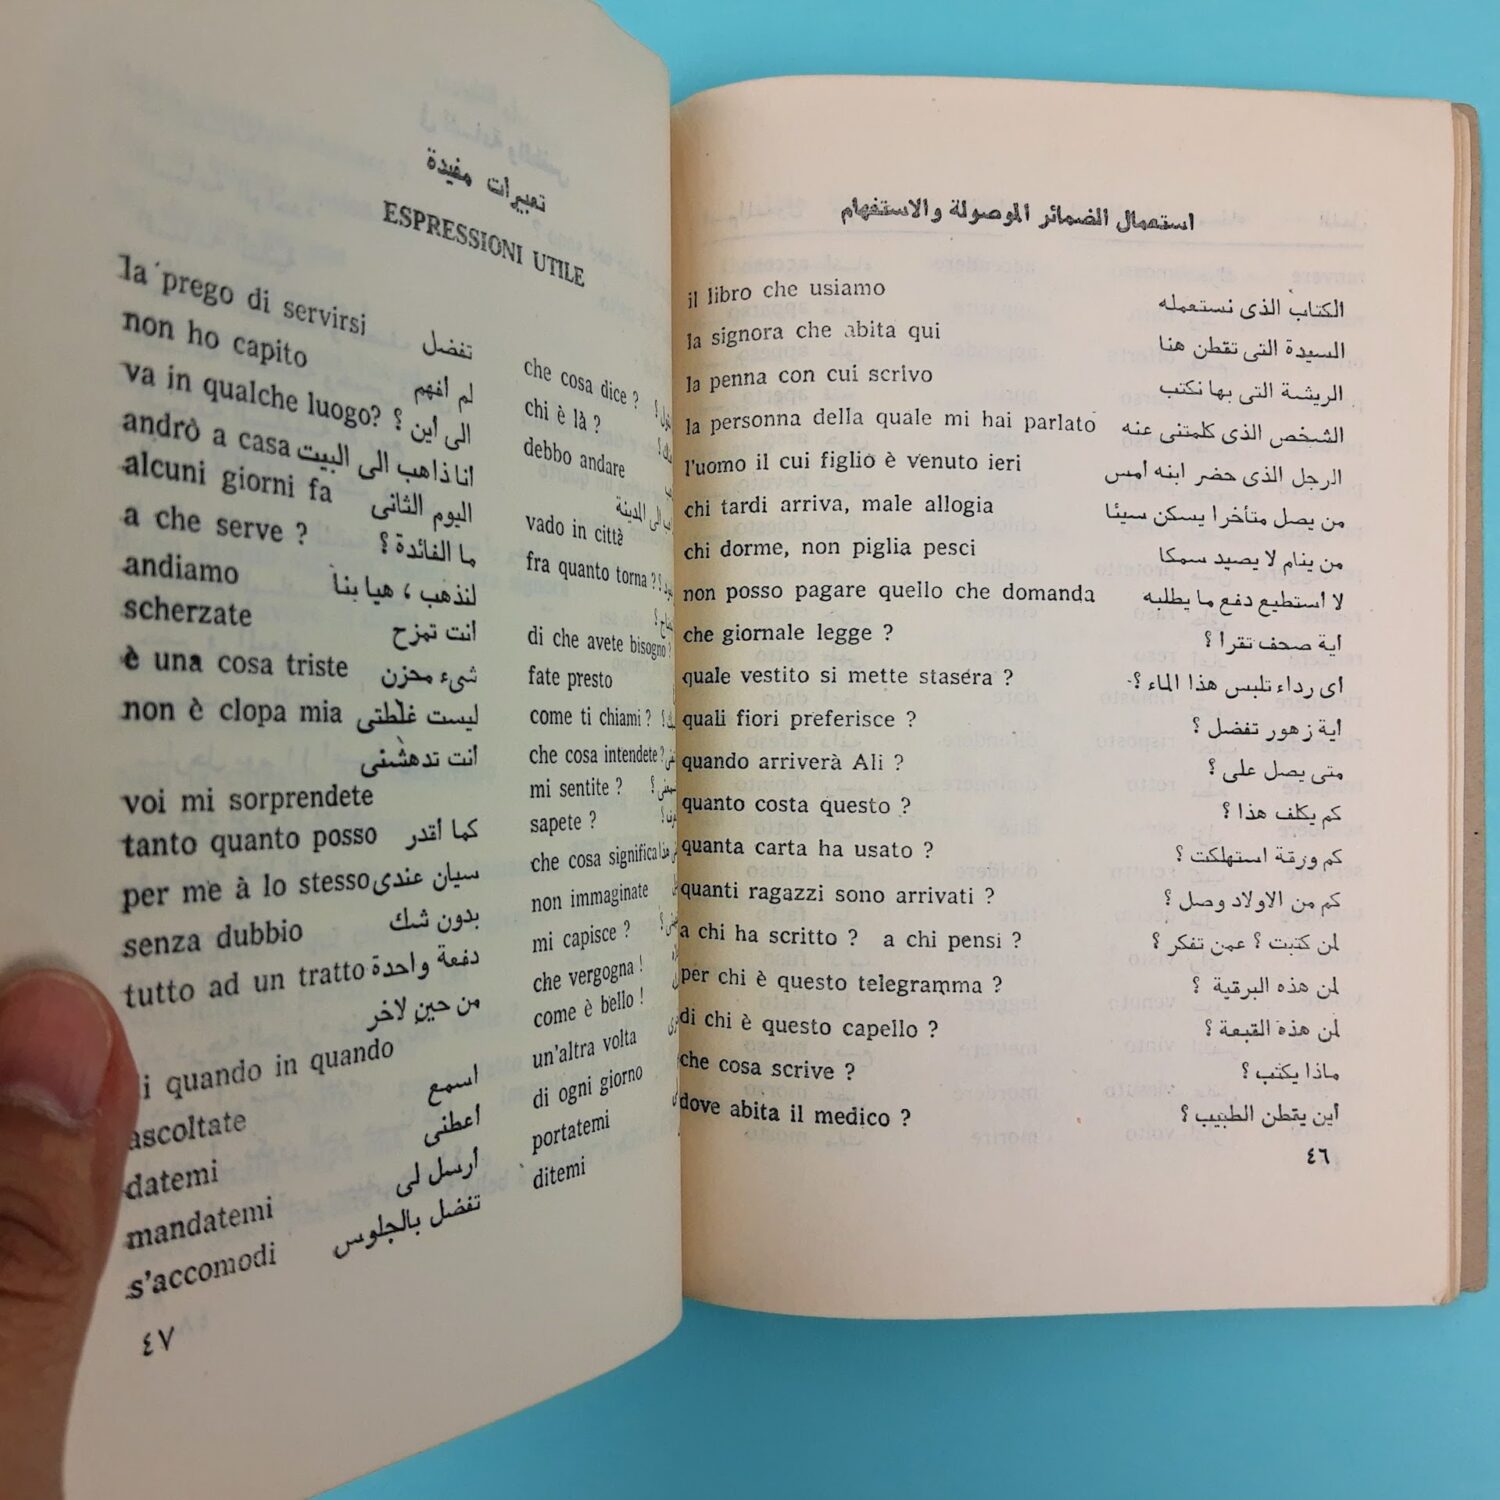 استعمال الضمائر الموصولة والاستفهام
il libro che usiamo الكتاب الذى نستعمله
la signora che abita qui السيدة التى تقطن هنا
la penna con cui scrivo الريشة التى بها نكتب
la personna della quale mi hai parlato الشخص الذى كلمتنى عنه
l'uomo il cui figlio è venuto ieri الرجل الذى حضر ابنه امس
chi tardi arriva, male allogia من يصل متأخرا يسكن سيئا
chi dorme, non piglia pesci من ينام لا يصيد سمكا
non posso pagare quello che domanda لا أستطيع دفع ما يطلبه
che giornale legge ? اية صحف تقرا ؟
quale vestito si mette stasera ? اى رداء تلبس هذا الماء ؟
quali fiori preferisce ? أية زهور تفضل ؟
quando arriverà Ali ? متى يصل على ؟
quanto costa questo ? كم يكلف هذا ؟
quanta carta ha usato ? كم ورقة استهلكت ؟
quanti ragazzi sono arrivati ? كم من الاولاد وصل ؟
a chi ha scritto ? a chi pensi ? لمن كتبت ؟ عمن تفكر ؟
per chi è questo telegramma ? لمن هذه البرقية ؟
di chi è questo capello ? لمن هذه القبعة ؟
che cosa scrive ? ماذا يكتب ؟
dove abita il medico ? أين يقطن الطبيب ؟
٤٦
تعبيرات مفيدة
ESPRESSIONI UTILE
la prego di servirsi تفضل
non ho capito لم أفهم
va in qualche luogo? الى أين ؟
andrò a casa انا ذاهب الى البيت
alcuni giorni fa اليوم الثانى
a che serve ? ما الفائدة ؟
andiamo لنذهب ، هيا بنا
scherzate انت تمزح
è una cosa triste شىء محزن
non è clopa mia ليست غلطتى
انت تدهشنى
voi mi sorprendete
tanto quanto posso كما أقدر
per me à lo stesso سيان عندى
senza dubbio بدون شك
tutto ad un tratto دفعة واحدة
من حين لاخر
i quando in quando
ascoltate اسمع
datemi أعطنى
mandatemi أرسل لى
s'accomodi تفضل بالجلوس
che cosa dice ?
chi è là ?
debbo andare
المدينة
vado in città
fra quanto torna ?
di che avete bisogno ?
fate presto
come ti chiami ?
che cosa intendete ?
mi sentite ?
sapete ?
che cosa significa
non immaginate
mi capisce ?
che vergogna !
come è bello !
un'altra volta
di ogni giorno
portatemi
ditemi
٤٧